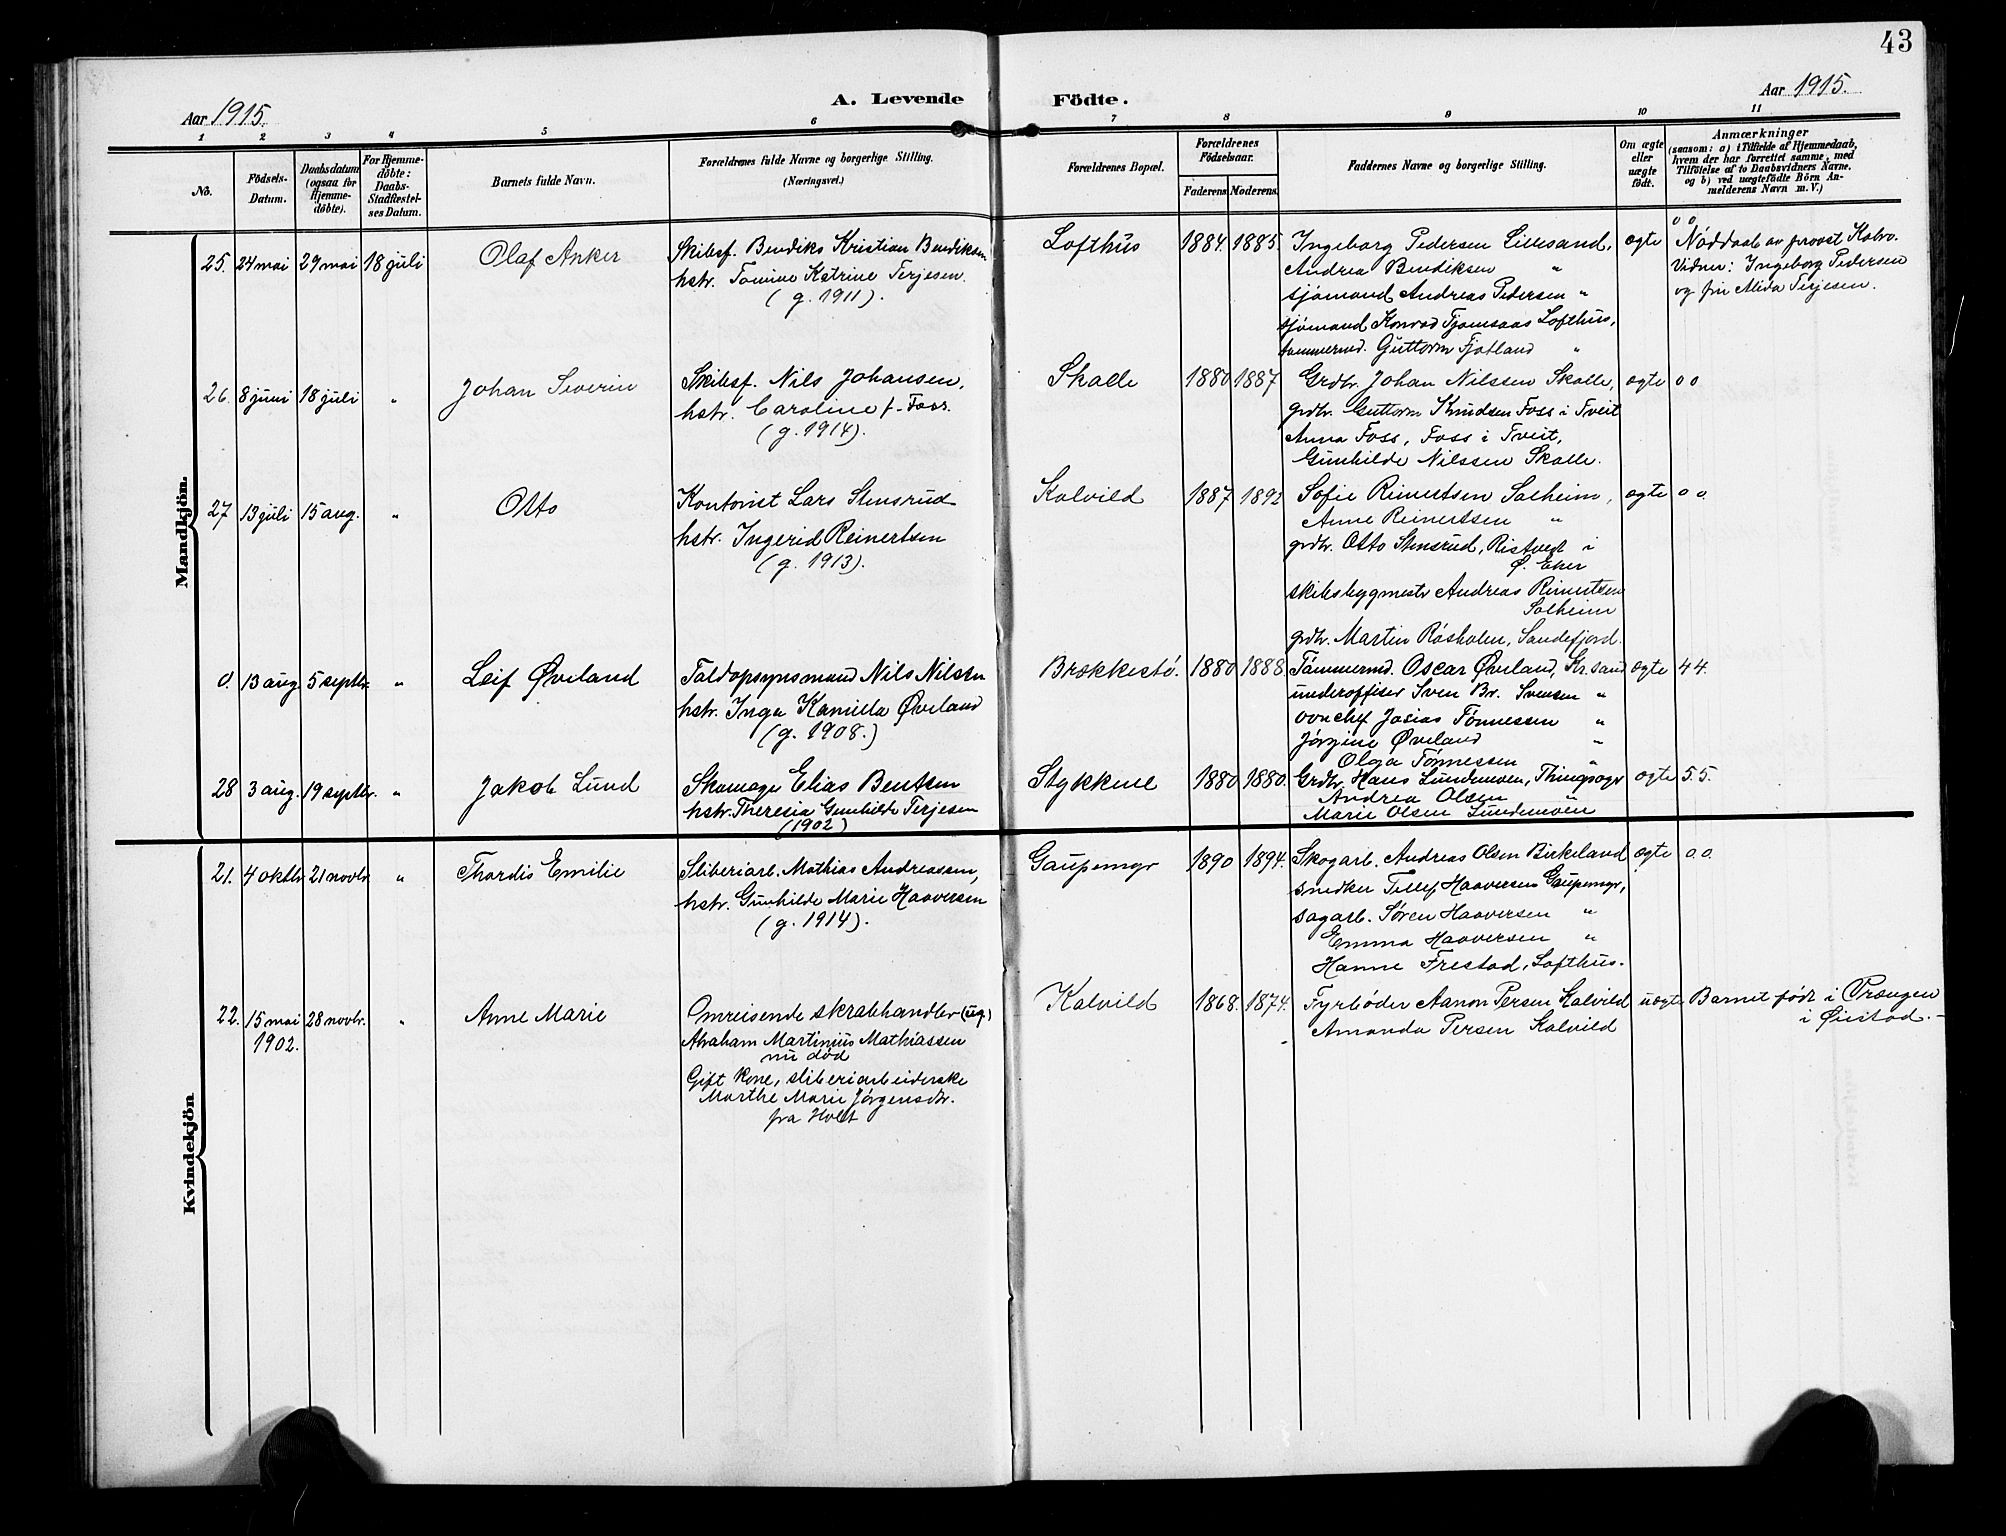 43
Aar 1915.
A. Levende Födte.
Aar 1915.
1 2 3 4 5 6 7 8 9 10 11
No.
Födsels-Datum.
Daabsdatum (ogsaa for Hjemme-döbte).
For Hjemme-döbte: Daabs-Stadfæstel-ses Datum.
Barnets fulde Navn.
Forældrenes fulde Navne og borgerlige Stilling.
(Næringsvei.)
Forældrenes Bopæl.
Forældrenes Födselsaar.
Faderens Moderens
Faddernes Navne og borgerlige Stilling.
Om ægte eller uægte födt.
Anmærkninger
(saasom: a) i Tilfælde af Hjemmedaab,
hvem der har forrettet samme, med
Tilföielse af to Daabsvidners Navne.
og b) ved uægtefödte Börn An-
melderens Navn m. V.)
Mandkjön.
25. 24 mai 29 mai 18 juli Olaf Anker
Skibsf. Bendiks Kristian Bendiksen
hstr. Tomine Katrine Terjesen.
(g. 1911).
Lofthus 1884. 1885.
Ingeborg Pedersen Lillesand,
Andrea Bendiksen "
sjømand Andreas Pedersen "
sjømand Konrad Tjomsaas Lofthus,
tømmermd. Guttorm Fjotland "
ægte
0 0
Nøddaab av provst Kalvo.
Vidner: Ingeborg Pedersen
og frü Alida Terjesen.
26. 8 juni 18 juli " Johan Severin
Skibsf. Nils Johansen,
hstr. Caroline f. Foss.
(g. 1914).
Skalle 1880 1887
Grdbr. Johan Nilssen Skalle,
grdbr. Guttorm Knudsen Foss i Tveit
Anna Foss, Foss i Tveit,
Gunhilde Nilssen Skalle.
ægte 0 0
27 13 juli 15 aug. " Otto
Kontorist Lars Stensrud
hstr. Ingerid Reinertsen
(g. 1913).
Kalvild 1887 1892
Sofie Reinertsen Solheim,
Anne Reinertsen "
grdbr. Otto Stensrud, Ristvedt i
Ø. Eker
skibsbygmestr Andreas Reinertsen
Solheim
grdbr. Martin Røsholm, Sandefjord.
ægte 0 0.
0. 13 aug. 5 septbr. " Leif Øveland
Toldopsynsmand Nils Nilsen
hstr. Inga Kamilla Øveland
(g. 1908.)
Brækkestø. 1880 1888
Tømmermd. Oscar Øveland, Kr.sand
underoffiser Sven Br. Svensen "
vovnchef Josias Tønnessen "
Jørgine Øveland "
Olga Tønnessen "
ægte 4 4.
28 3 aug. 19 septbr. " Jakob Lund
Skomager Elias Bentsen
hstr. Theresia Gunhilde Terjesen
(1902)
Stykkene 1880 1880.
Grdbr. Hans Lundemoen, Thingsogr
Andrea Olsen "
Marie Olsen Lundemoen
ægte 5 5.
Kvindekjön
21. 4 oktbr 21 novbr. " Thordis Emilie
Sliberiarb. Mathias Andreassen,
hstr. Gunhilde Marie Haaversen
(g. 1914).
Gaupemyr 1890 1894.
Skogarb. Andreas Olsen Birkeland
snedker Tellef Haaversen Gaupemyr,
sagarb. Søren Haaversen "
Emma Haaversen "
Hanne Frestad, Lofthus.
ægte 0 0.
22. 15 mai 1902. 28 novbr. " Anne Marie
Omreisende skrabhandler (ug.)
Abraham Martinius Mathiassen
nu død
Gift kone, sliberiarbeiderske
Marthe Marie Jørgensdtr.
fra Holt
Kalvild 1868. 1874.
Fyrbøder Aanon Persen Kalvild
Amanda Persen Kalvild
uægte
Barnet født i Vrængen
i Øiestad.